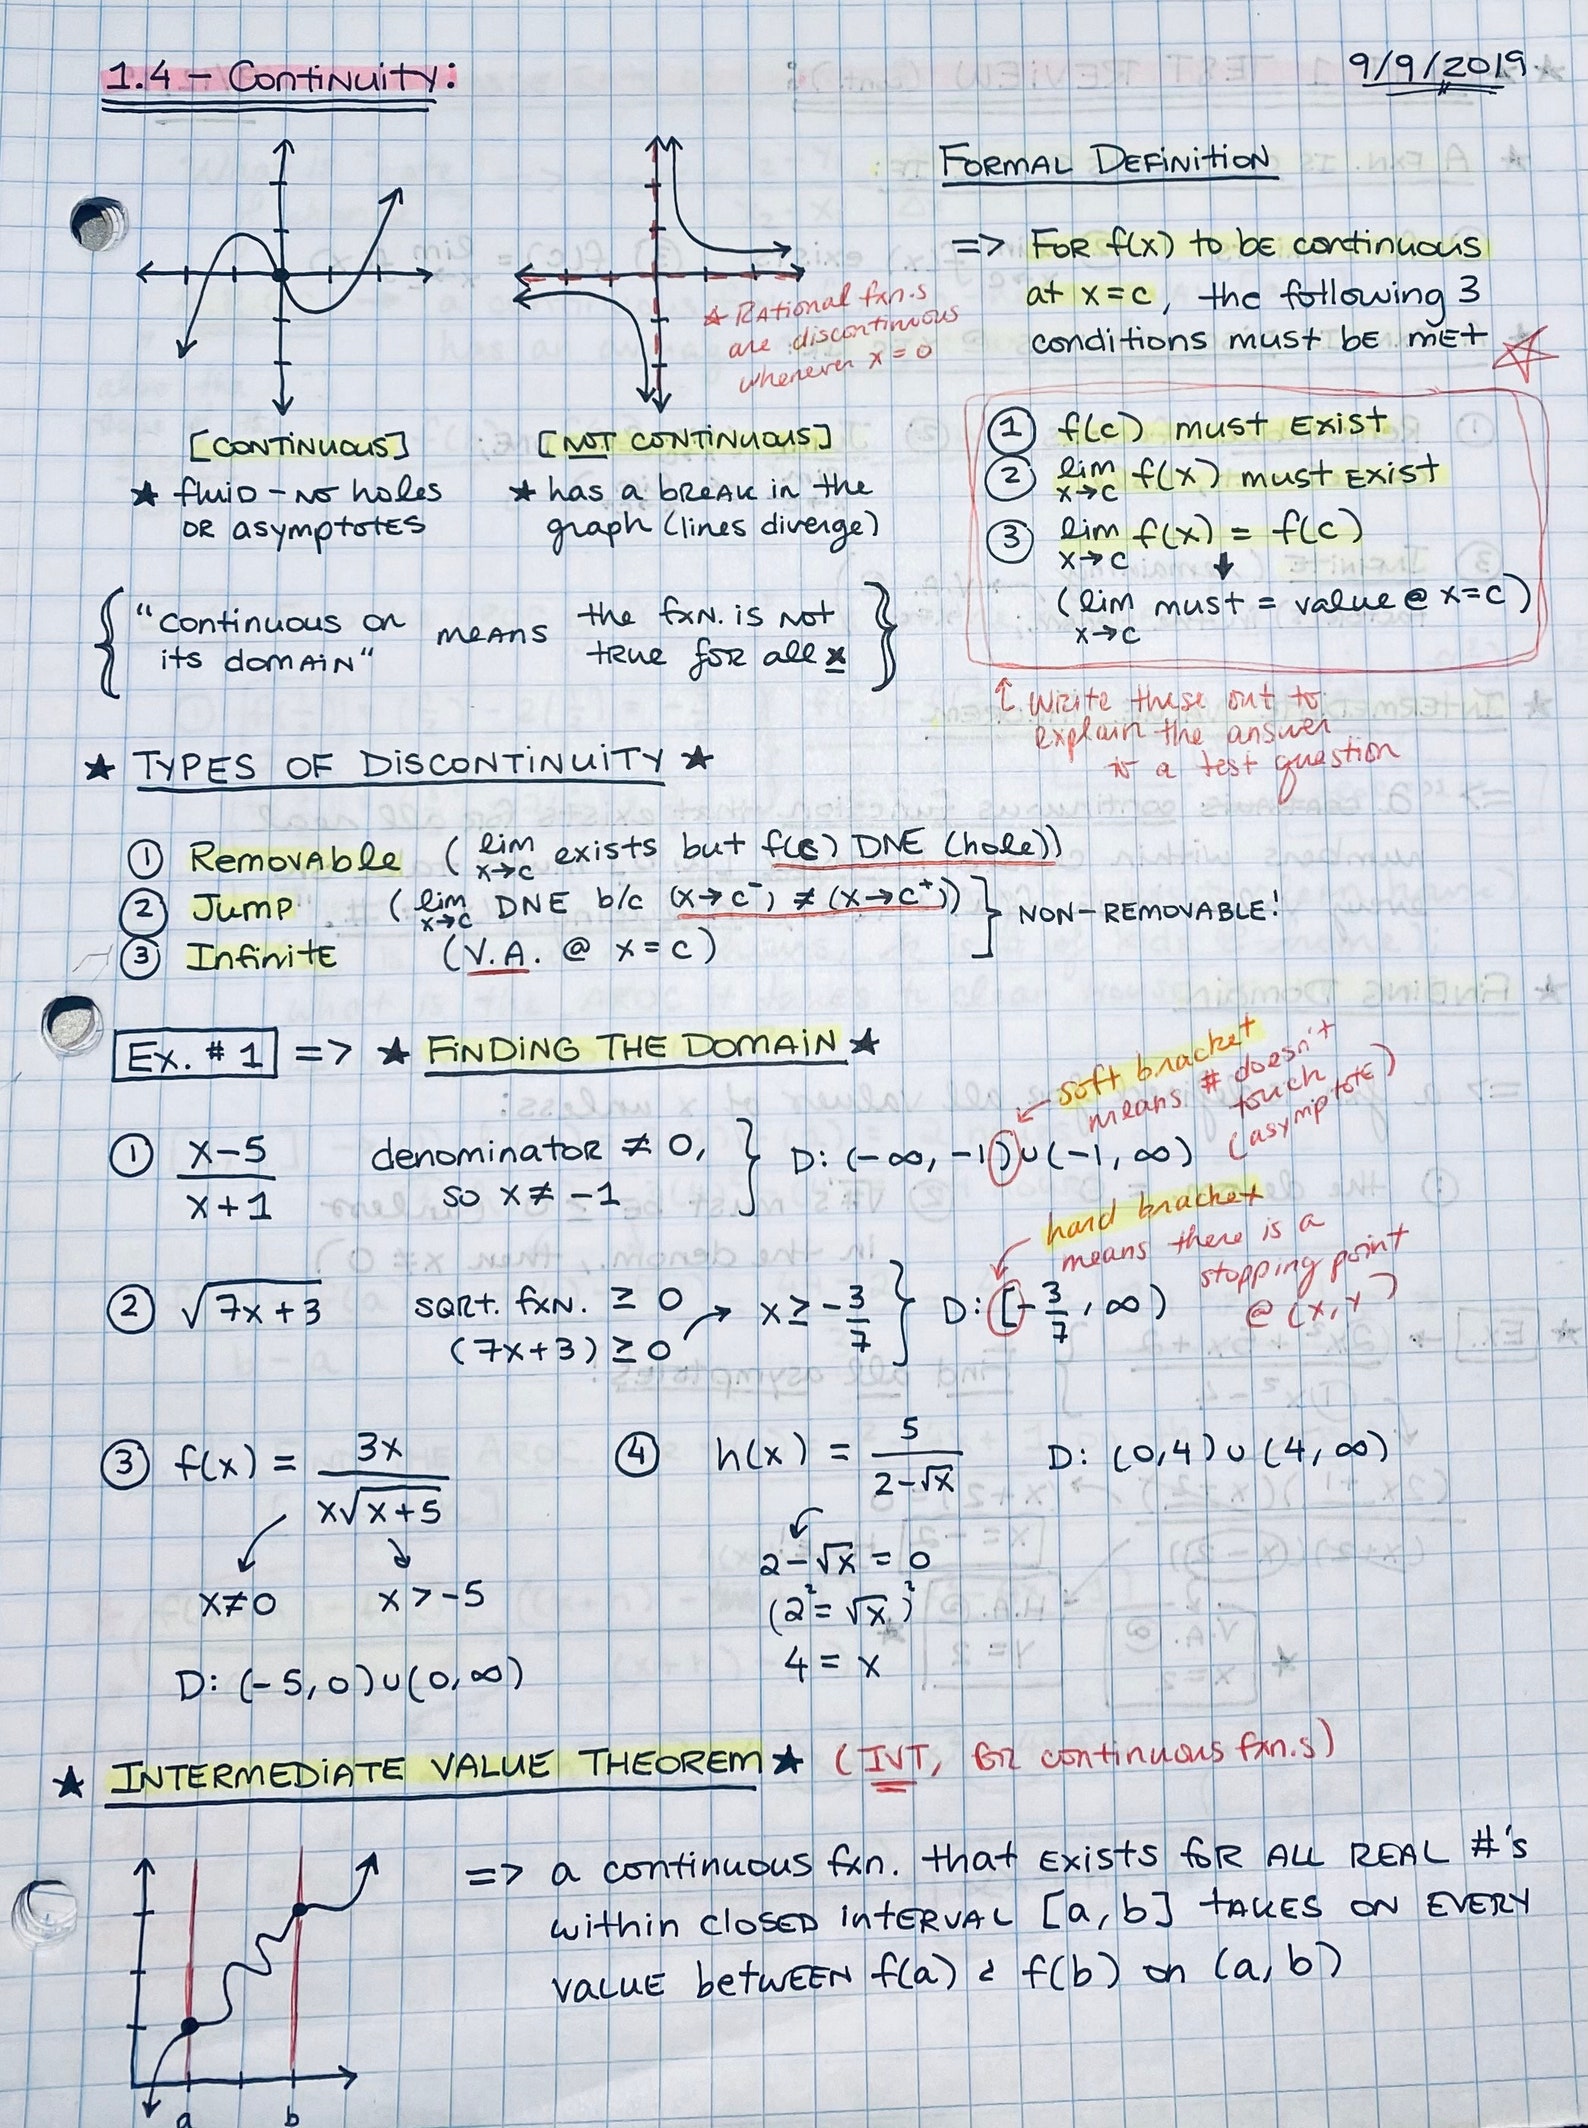 1.4 - Continuity:
9/9/2019
★ Rational fxn.s
are discontinuous
whenever x = 0
[CONTINUOUS]
★ fluid - no holes
or asymptotes
[NOT CONTINUOUS]
★ has a break in the
graph (lines diverge)
{ "continuous on its domain" means the fxn. is not true for all x }
Formal Definition
=> For f(x) to be continuous
at x=c, the following 3
conditions must be met
① f(c) must exist
② lim x→c f(x) must exist
③ lim x→c f(x) = f(c)
↓
(lim x→c must = value @ x=c)
↑ Write these out to
explain the answer
to a test question
★ TYPES OF DISCONTINUITY ★
① Removable (lim x→c exists but f(c) DNE (hole))
② Jump (lim x→c DNE b/c (x→c⁻) ≠ (x→c⁺))
③ Infinite (V.A. @ x=c)
} NON-REMOVABLE!
Ex. #1 => ★ FINDING THE DOMAIN ★
① x-5 / x+1
denominator ≠ 0,
so x ≠ -1
} D: (-∞, -1)∪(-1, ∞)
← soft bracket
means # doesn't
touch
(asymptote)
② √7x+3
sqrt. fxn. ≥ 0
(7x+3) ≥ 0 → x ≥ -3/7 } D: [-3/7, ∞)
hard bracket
means there is a
stopping point
@ (x, y)
③ f(x) = 3x / x√x+5
x≠0 x > -5
D: (-5, 0)∪(0, ∞)
④ h(x) = 5 / 2-√x
D: (0,4)∪(4, ∞)
2-√x = 0
(2² = √x)²
4 = x
★ INTERMEDIATE VALUE THEOREM ★ (IVT, for continuous fxn.s)
=> a continuous fxn. that exists for ALL REAL #'s
within closed interval [a,b] takes on every
value between f(a) & f(b) on (a,b)
a b